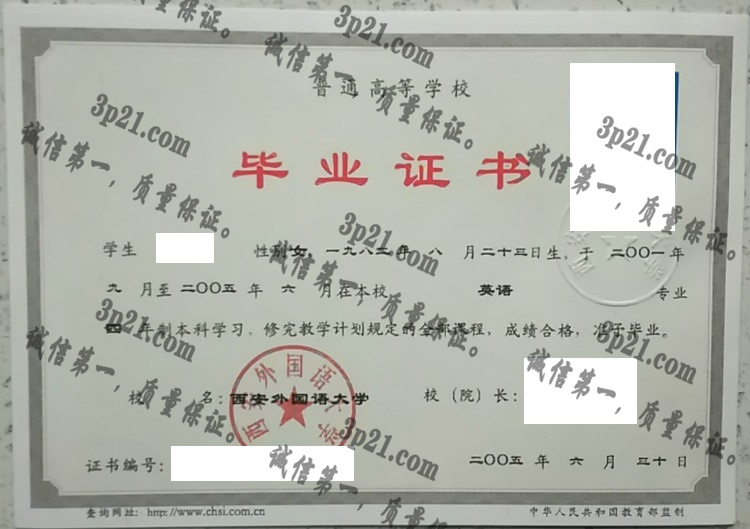 普通高等学校
毕业证书
学生 性别女,一九八二年 八 月二十三日生,于 二〇〇一年
九 月至二〇〇五年 六 月在本校 英语 专业
四 年制本科学习,修完教学计划规定的全部课程,成绩合格,准予毕业。
校 名:西安外国语大学 校(院)长:
证书编号: 二〇〇五年 六 月 三十日
查询网址:http://www.chsi.com.cn 中华人民共和国教育部监制
西安外国语大学
3p21.com
诚信第一,质量保证。
3p21.com
诚信第一,质量保证。
3p21.com
诚信第一,质量保证。
3p21.com
诚信第一,质量保证。
3p21.com
诚信第一,质量保证。
3p21.com
诚信第一,质量保证。
3p21.com
诚信第一,质量保证。